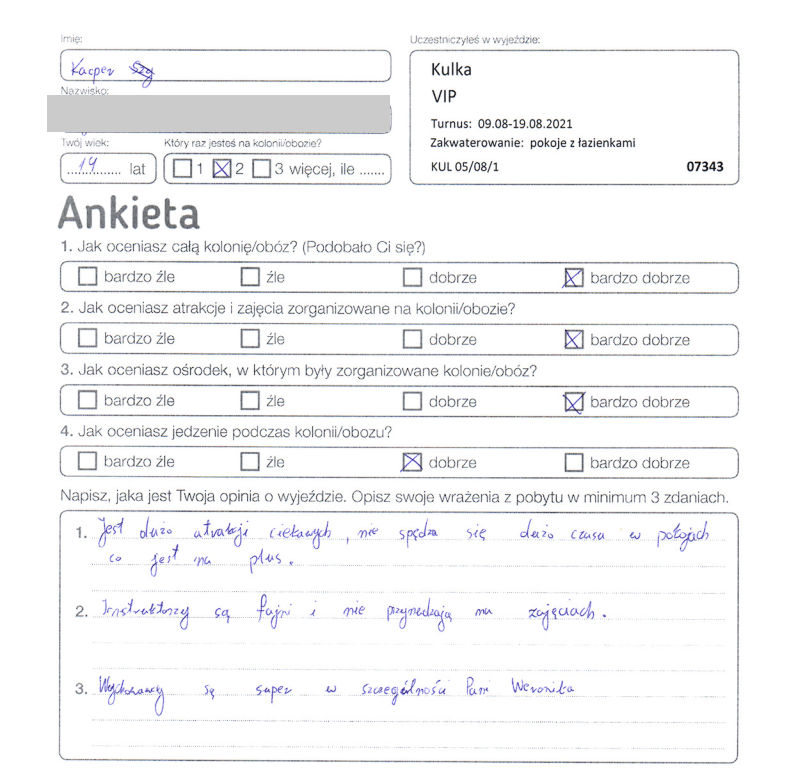 Imię:
Kacper
Nazwisko:
Twój wiek:
14 lat
Który raz jesteś na kolonii/obozie?
1 2 3 więcej, ile .......
Uczestniczyłeś w wyjeździe:
Kulka
VIP
Turnus: 09.08-19.08.2021
Zakwaterowanie: pokoje z łazienkami
KUL 05/08/1 07343
Ankieta
1. Jak oceniasz całą kolonię/obóz? (Podobało Ci się?)
bardzo źle źle dobrze bardzo dobrze
2. Jak oceniasz atrakcje i zajęcia zorganizowane na kolonii/obozie?
bardzo źle źle dobrze bardzo dobrze
3. Jak oceniasz ośrodek, w którym były zorganizowane kolonie/obóz?
bardzo źle źle dobrze bardzo dobrze
4. Jak oceniasz jedzenie podczas kolonii/obozu?
bardzo źle źle dobrze bardzo dobrze
Napisz, jaka jest Twoja opinia o wyjeździe. Opisz swoje wrażenia z pobytu w minimum 3 zdaniach.
1. Jest dużo atrakcji ciekawych, nie spędza się dużo czasu w pokojach
co jest na plus.
2. Instruktorzy są fajni i nie na zajęciach.
3. Wychowawcy są super w szczególności Pani Weronika